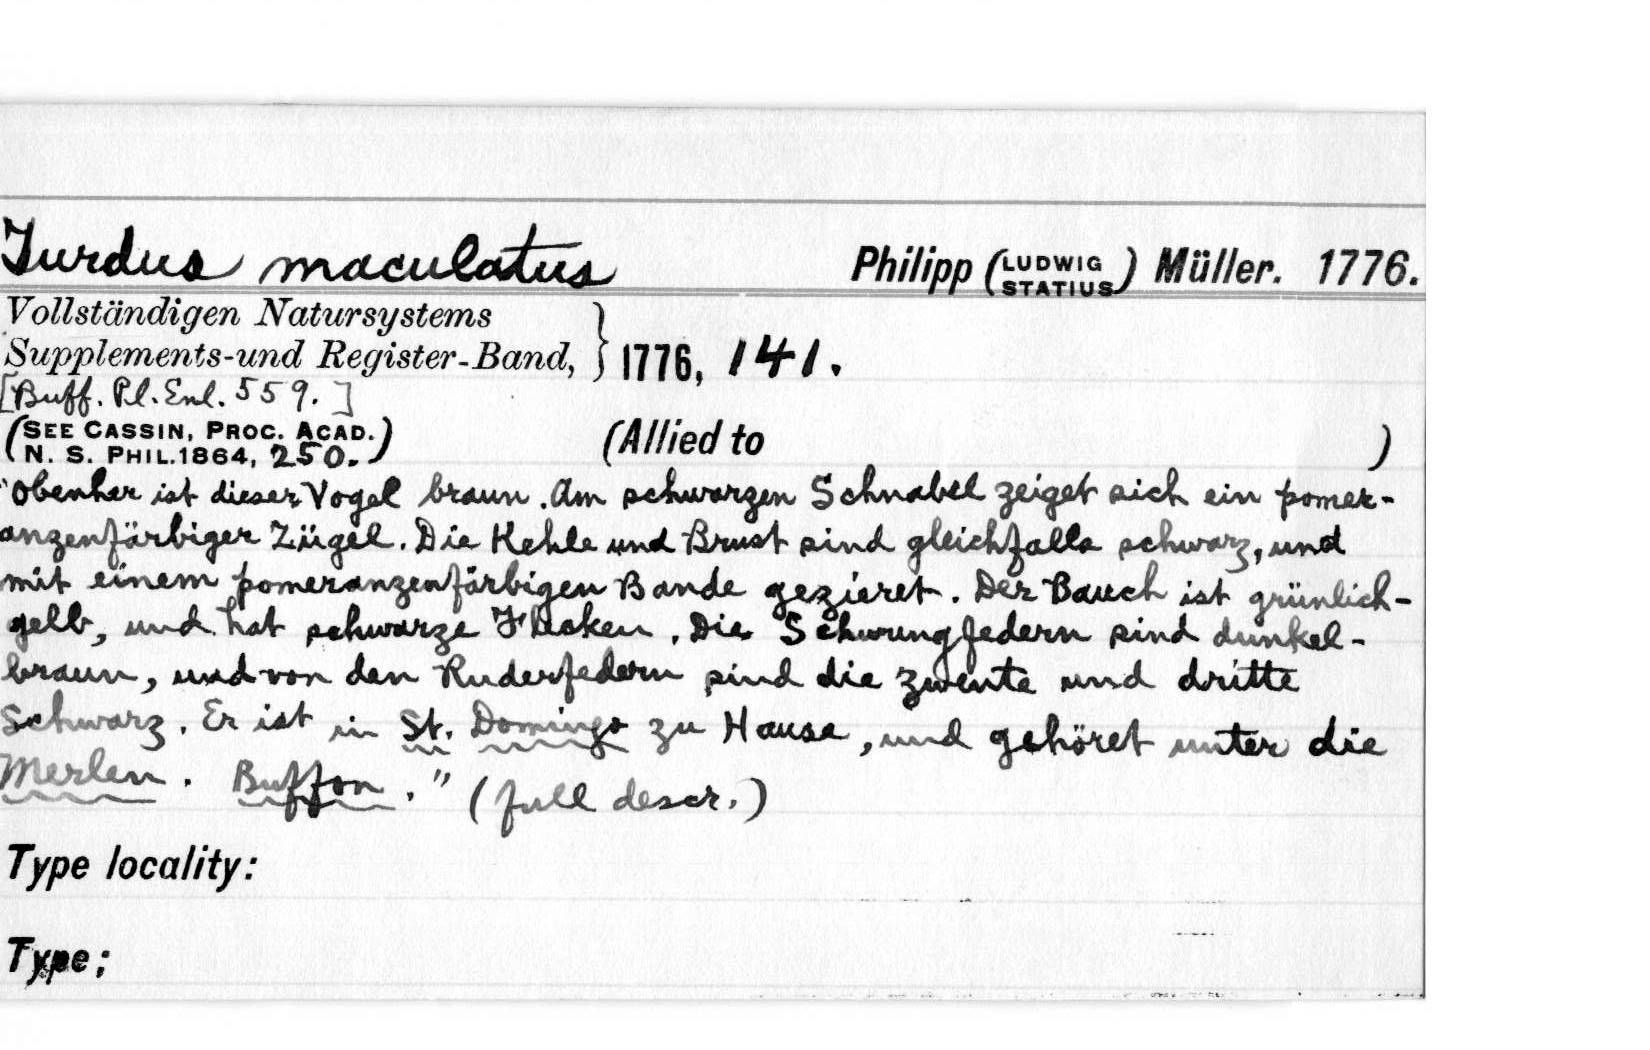 Turdus maculatus Philipp (LUDWIG STATIUS) Müller. 1776.
Vollständigen Natursystems
Supplements-und Register-Band, } 1776, 141.
[Buff. Pl. Enl. 559.]
(SEE CASSIN, PROC. ACAD. (Allied to )
N. S. PHIL. 1864, 250.)
"Obenher ist dieser Vogel braun. Am schwarzen Schnabel zeiget sich ein pomer-
anzenfärbiger Zügel. Die Kehle und Brust sind gleichfalls schwarz, und
mit einem pomeranzenfärbigen Bande gezieret. Der Bauch ist grünlich-
gelb, und hat schwarze Flecken. Die Schwungfedern sind dunkel-
braun, und von den Ruderfedern sind die zwente und dritte
Schwarz. Er ist in St. Domingo zu Hause, und gehöret unter die
Merlen. Buffon." (full descr.)
Type locality:
Type;